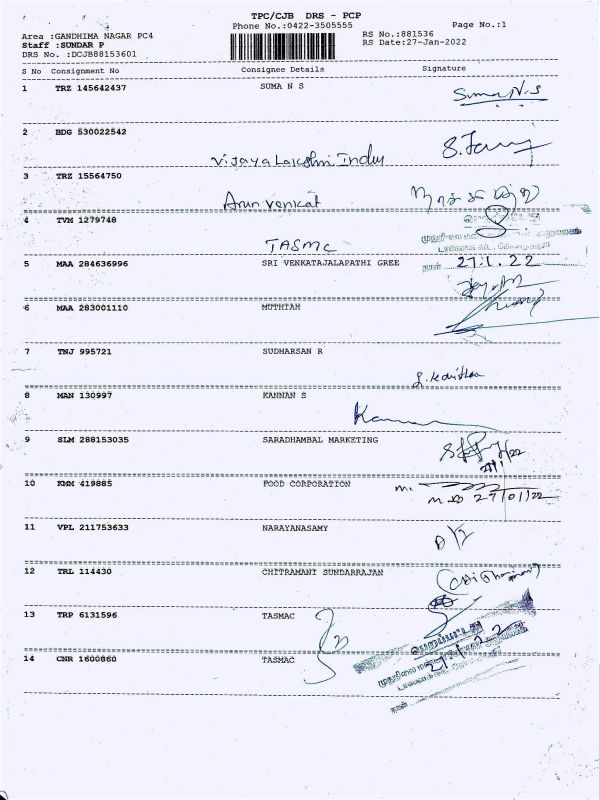 TPC/CJB DRS - PCP
Phone No.:0422-3505555 Page No.:1
Area :GANDHIMA NAGAR PC4 RS No.:881536
Staff :SUNDAR P RS Date:27-Jan-2022
DRS No. :DCJB88153601
S No Consignment No Consignee Details Signature
1 TRZ 145642437 SUMA N S
Suma N.S
2 BDG 530022542
Vijaya Lakshmi Indu
3 TRZ 15564750
Arun Venkat
4 TVM 1279748
TASMC
5 MAA 284636996 SRI VENKATAJALAPATHI GREE
நாள் 27.1.22
6 MAA 283001110 MUTHIAH
7 TNJ 995721 SUDHARSAN R
8 MAN 130997 KANNAN S
Kannan
9 SLM 288153035 SARADHAMBAL MARKETING
10 KMM 419885 FOOD CORPORATION
27/01/22
11 VPL 211753633 NARAYANASAMY
12 TRL 114430 CHITRAMANI SUNDARRAJAN
13 TRP 6131596 TASMAC
14 CNR 1600860 TASMAC